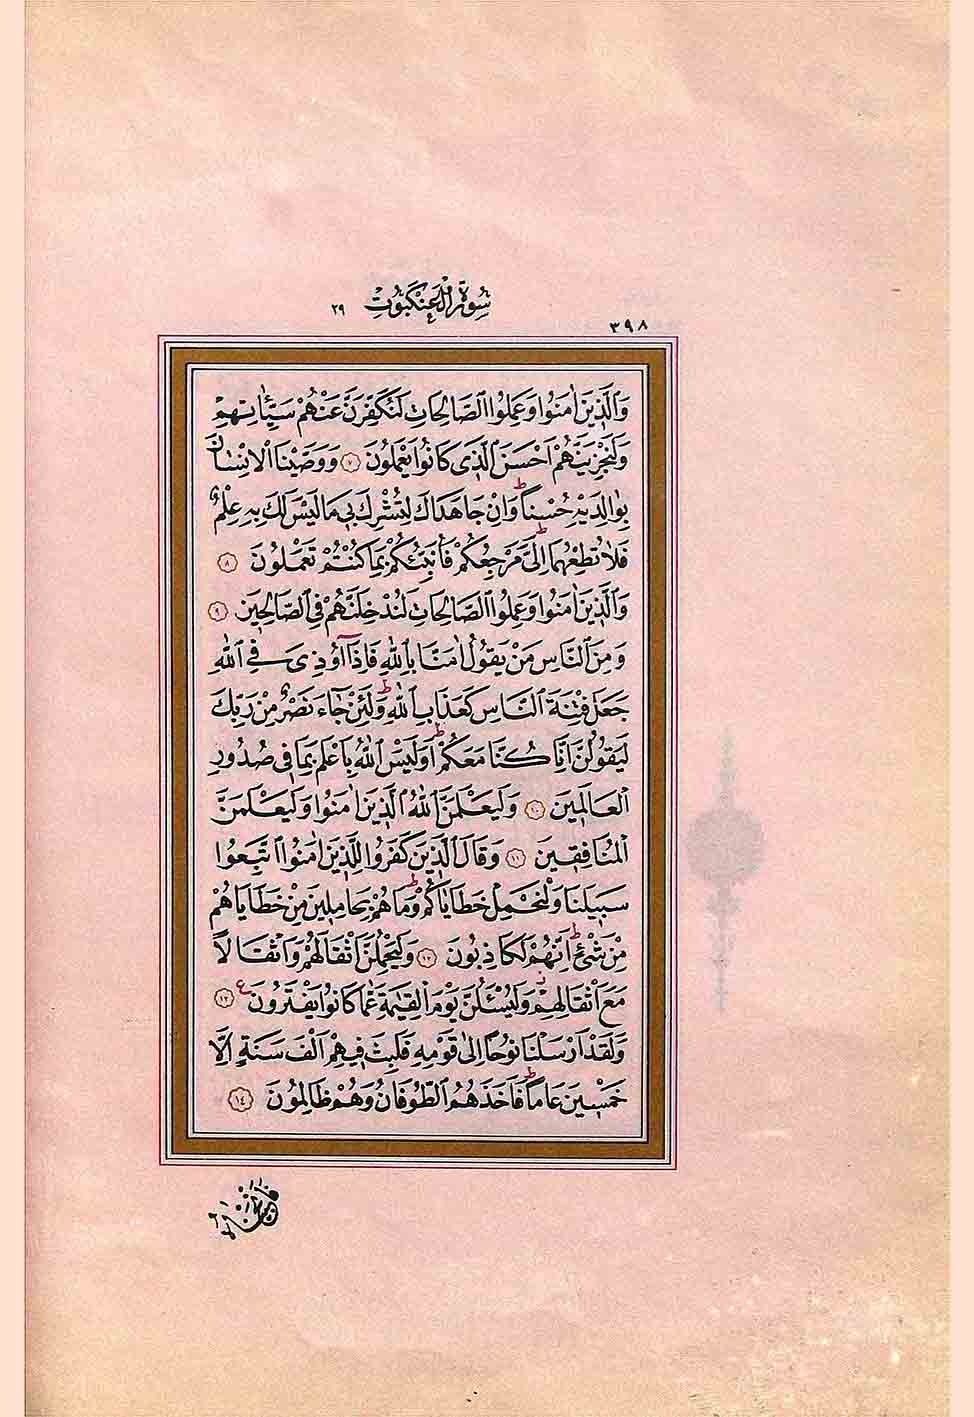 سورة العنكبوت ٢٩
٣٩٨
وَالَّذِينَ اٰمَنُوا وَعَمِلُوا الصَّالِحَاتِ لَنُكَفِّرَنَّ عَنْهُمْ سَيِّـَٔاتِهِمْ
وَلَنَجْزِيَنَّهُمْ اَحْسَنَ الَّذِى كَانُوا يَعْمَلُونَ ٧ وَوَصَّيْنَا الْاِنْسَانَ
بِوَالِدَيْهِ حُسْنًا ط وَاِنْ جَاهَدَاكَ لِتُشْرِكَ بِى مَا لَيْسَ لَكَ بِهِ عِلْمٌ
فَلَا تُطِعْهُمَا ط اِلَىَّ مَرْجِعُكُمْ فَاُنَبِّئُكُمْ بِمَا كُنْتُمْ تَعْمَلُونَ ٨
وَالَّذِينَ اٰمَنُوا وَعَمِلُوا الصَّالِحَاتِ لَنُدْخِلَنَّهُمْ فِى الصَّالِحِينَ ٩
وَمِنَ النَّاسِ مَنْ يَقُولُ اٰمَنَّا بِاللّٰهِ فَاِذَٓا اُو۫ذِىَ فِى اللّٰهِ
جَعَلَ فِتْنَةَ النَّاسِ كَعَذَابِ اللّٰهِ ط وَلَئِنْ جَٓاءَ نَصْرٌ مِنْ رَبِّكَ
لَيَقُولُنَّ اِنَّا كُنَّا مَعَكُمْ ط اَوَلَيْسَ اللّٰهُ بِاَعْلَمَ بِمَا فِى صُدُورِ
الْعَالَمِينَ ١٠ وَلَيَعْلَمَنَّ اللّٰهُ الَّذِينَ اٰمَنُوا وَلَيَعْلَمَنَّ
الْمُنَافِقِينَ ١١ وَقَالَ الَّذِينَ كَفَرُوا لِلَّذِينَ اٰمَنُوا اتَّبِعُوا
سَبِيلَنَا وَلْنَحْمِلْ خَطَايَاكُمْ ط وَمَا هُمْ بِحَامِلِينَ مِنْ خَطَايَاهُمْ
مِنْ شَىْءٍ ط اِنَّهُمْ لَكَاذِبُونَ ١٢ وَلَيَحْمِلُنَّ اَثْقَالَهُمْ وَاَثْقَالًا
مَعَ اَثْقَالِهِمْ ز وَلَيُسْـَٔلُنَّ يَوْمَ الْقِيٰمَةِ عَمَّا كَانُوا يَفْتَرُونَ ع ١٣
وَلَقَدْ اَرْسَلْنَا نُوحًا اِلٰى قَوْمِهِ فَلَبِثَ فِيهِمْ اَلْفَ سَنَةٍ اِلَّا
خَمْسِينَ عَامًا ط فَاَخَذَهُمُ الطُّوفَانُ وَهُمْ ظَالِمُونَ ١٤